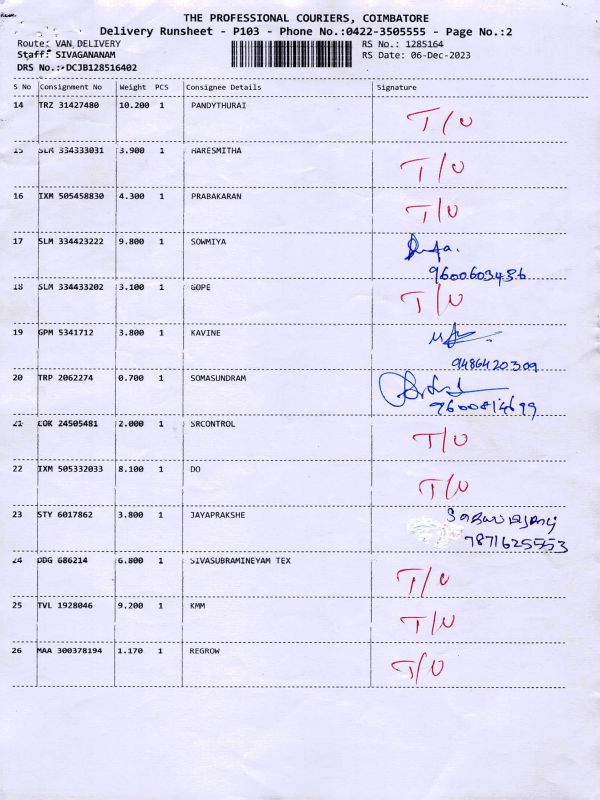 THE PROFESSIONAL COURIERS, COIMBATORE
Delivery Runsheet - P103 - Phone No.:0422-3505555 - Page No.:2
Route: VAN DELIVERY RS No.: 1285164
Staff: SIVAGANANAM RS Date: 06-Dec-2023
DRS No.:-DCJB128516402
S No Consignment No Weight PCS Consignee Details Signature
14 TRZ 31427480 10.200 1 PANDYTHURAI T/U
15 SLM 334333031 3.900 1 HARESMITHA T/U
16 IXM 505458830 4.300 1 PRABAKARAN T/U
17 SLM 334423222 9.800 1 SOWMIYA
9600603486
18 SLM 334433202 3.100 1 GOPE T/U
19 GPM 5341712 3.800 1 KAVINE
9486420309
20 TRP 2062274 0.700 1 SOMASUNDRAM
9600814699
21 COK 24505481 2.000 1 SRCONTROL T/U
22 IXM 505332033 8.100 1 DO T/U
23 STY 6017862 3.800 1 JAYAPRAKSHE
7871625553
24 DDG 686214 6.800 1 SIVASUBRAMINEYAM TEX T/U
25 TVL 1928046 9.200 1 KMM T/U
26 MAA 300378194 1.170 1 REGROW T/U